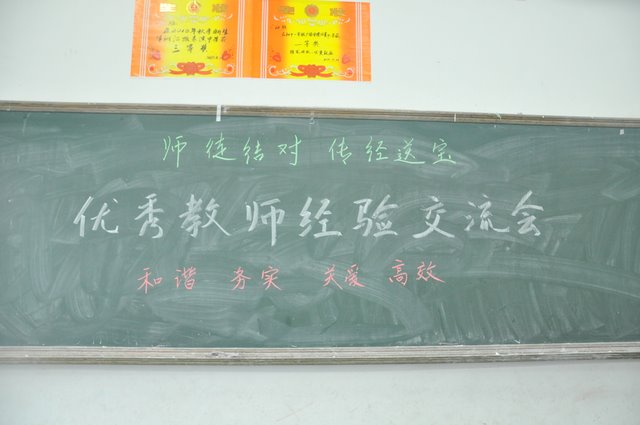 三等奖
一等奖
师徒结对 传经送宝
优秀教师经验交流会
和谐 务实 关爱 高效